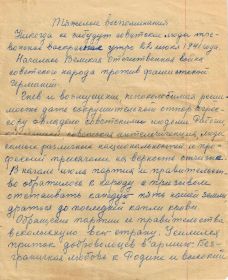 Тяжелые воспоминания
Никогда не забудут советские люди тре-
вожное воскресное утро 22 июня 1941 года.
Началась Великая Отечественная война
советского народа против фашистской
Германии.
Гнев и возмущение, непоколебимая реши-
мость дать сокрушительный отпор агрес-
сору овладело советскими людьми. Рабочие
советская интеллигенция, люди
самых различных национальностей и про-
фессий присягали на верность отчизне.
В начале июля партия и правительст-
во обратилось к народу с призывом
отстаивать каждую пядь нашей земли
драться до последней капли крови.
Обращение партии и правительства
всколыхнуло всю страну. Усилился
приток добровольцев в армию. Без-
граничная любовь к Родине и великий